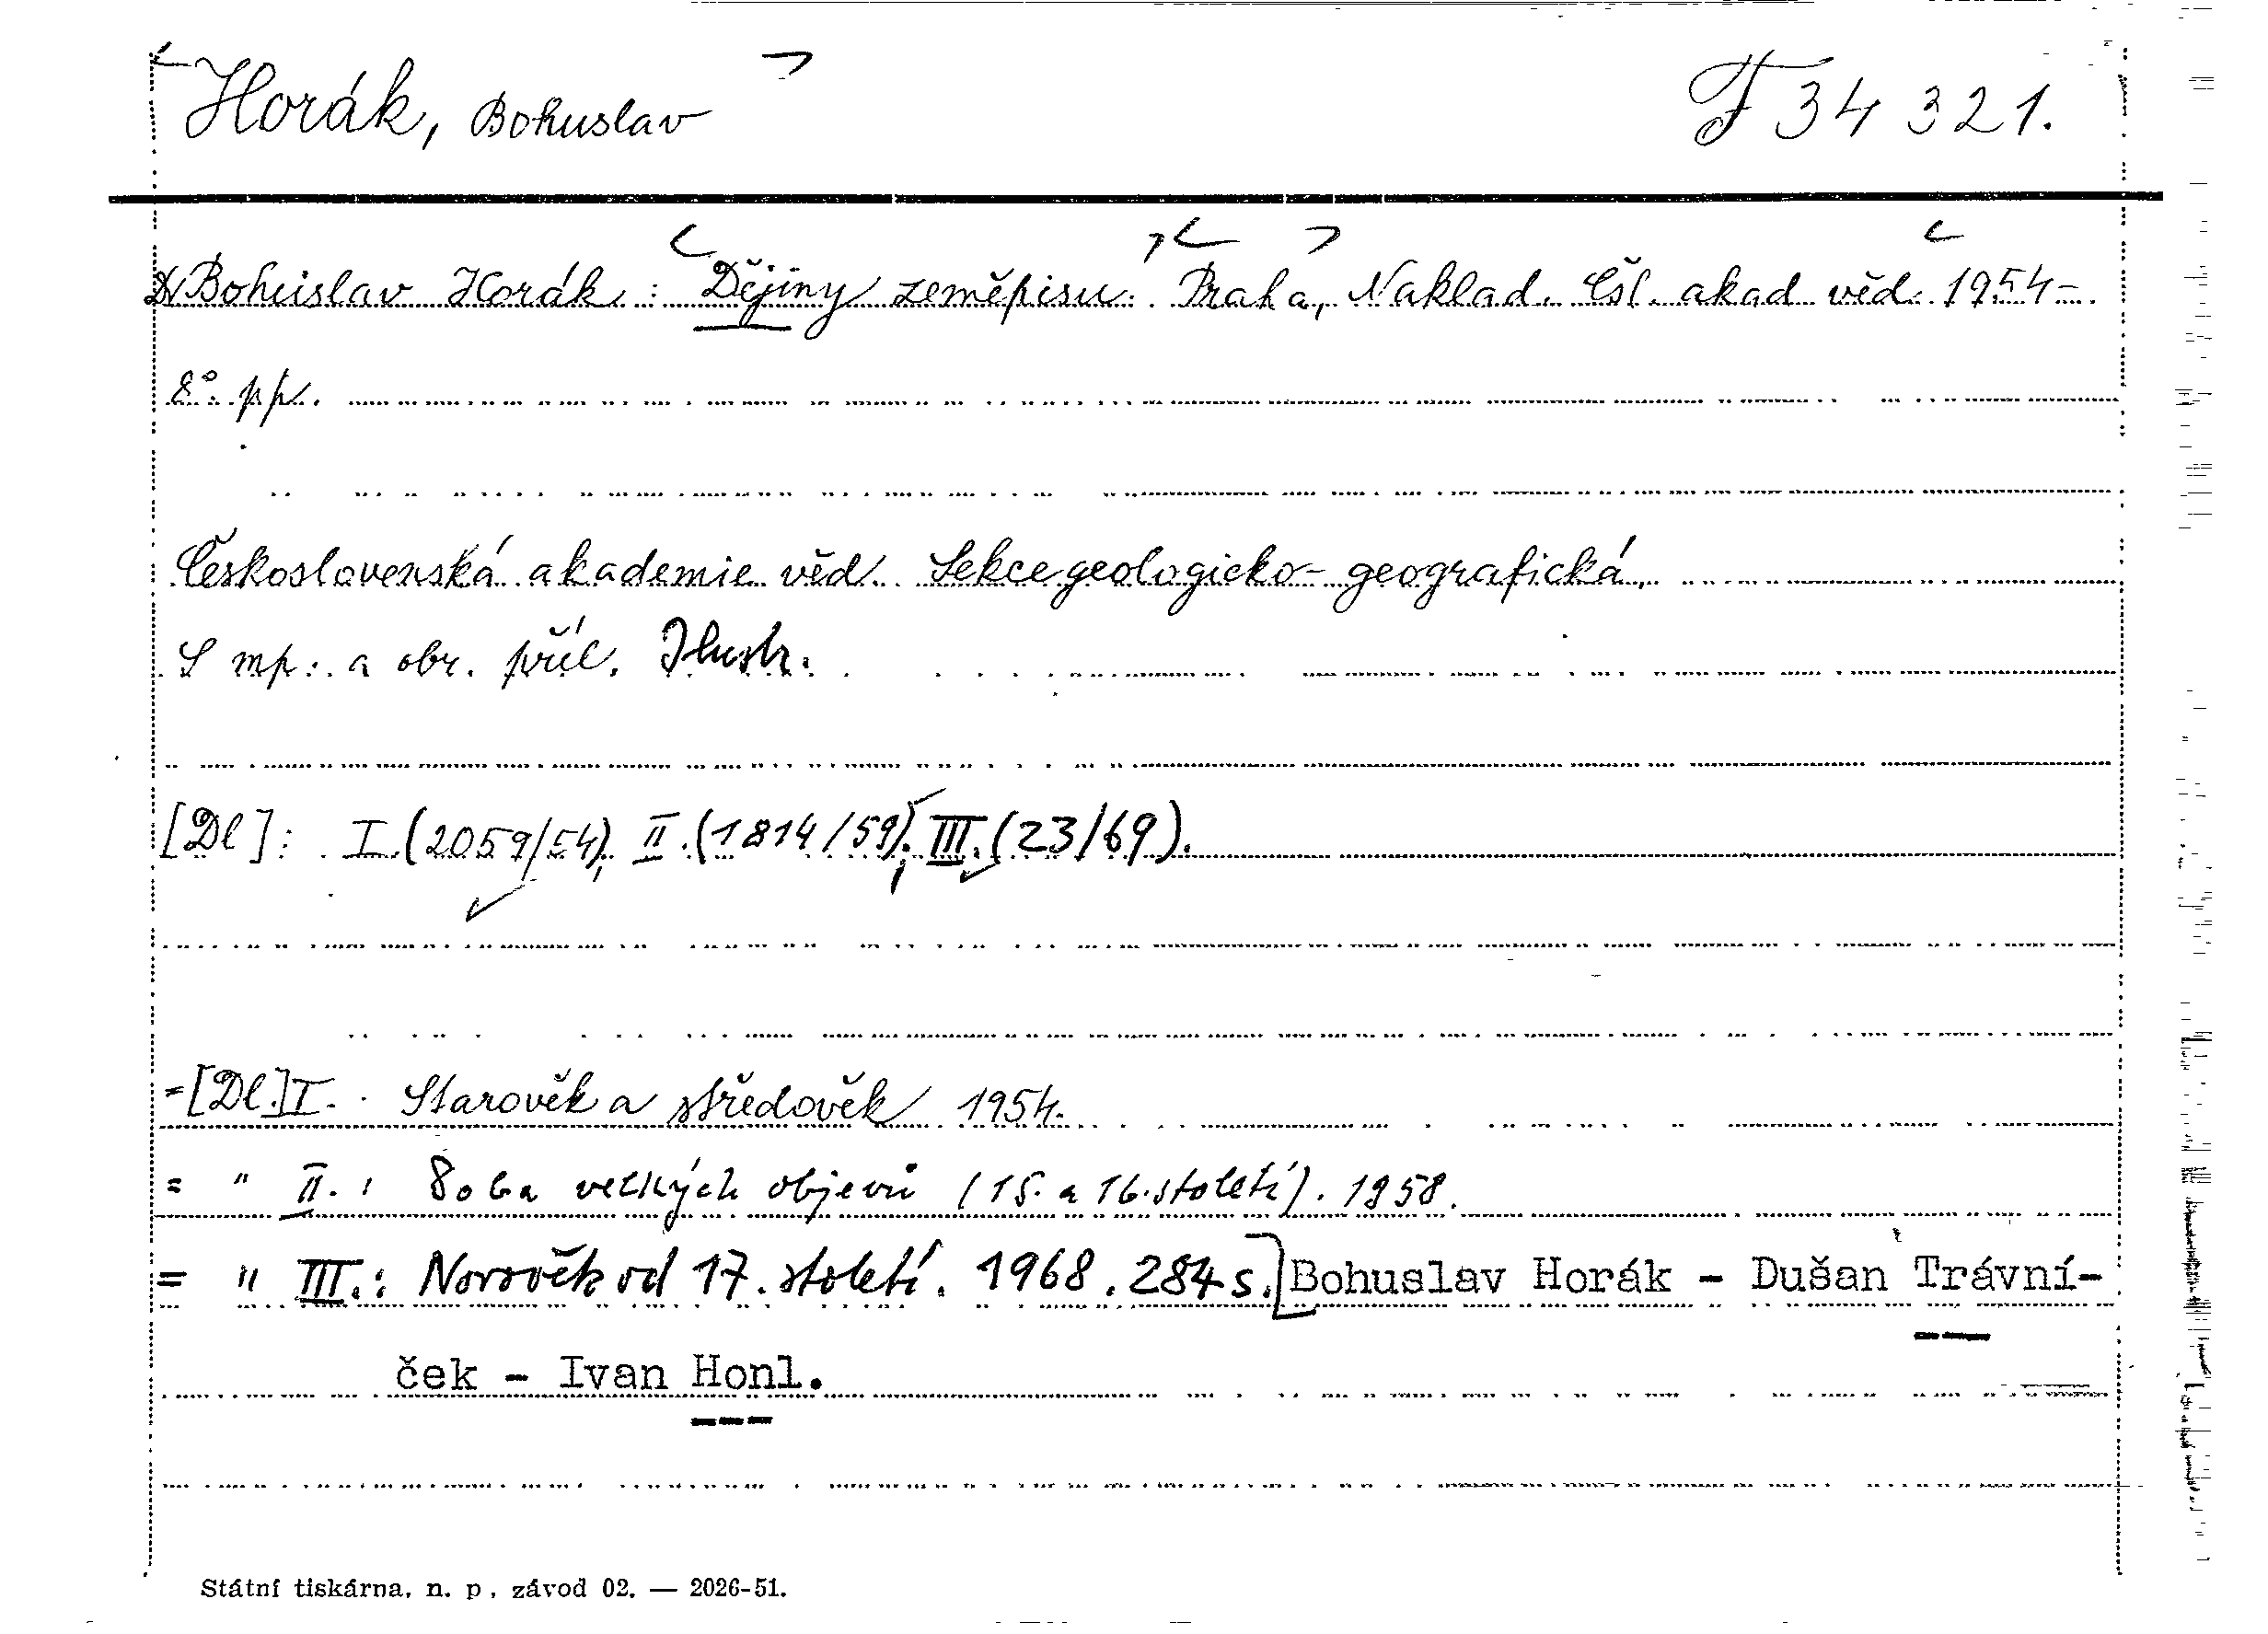 Horák, Bohuslav F 34 321.
Bohuslav Horák : Dějiny zeměpisu. Praha, Naklad. Čsl. akad věd. 1954-.
8°. pp.
Československá akademie věd. Sekce geologicko-geografická.
S mp. a obr. příl. Ilustr.
[Dl]: I.(2059/54), II.(1814/59), III.(23/69).
=[Dl.]I. Starověk a středověk 1954.
= " II.: Doba velkých objevů (15. a 16. století). 1958.
= " III.: Novověk od 17. století. 1968. 284 s.] Bohuslav Horák - Dušan Trávní-
ček - Ivan Honl.
Státní tiskárna, n. p., závod 02. — 2026-51.